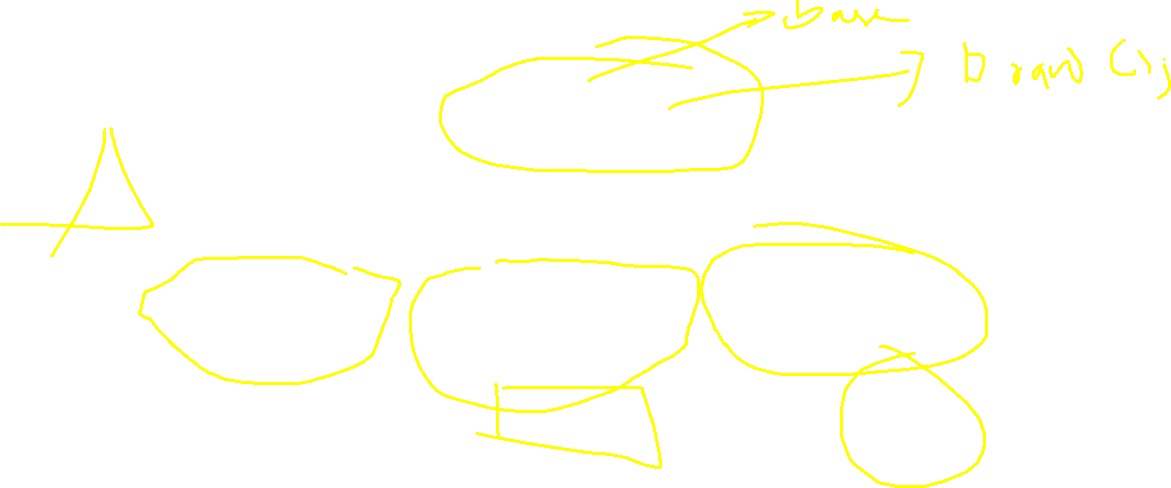 base
Draw();